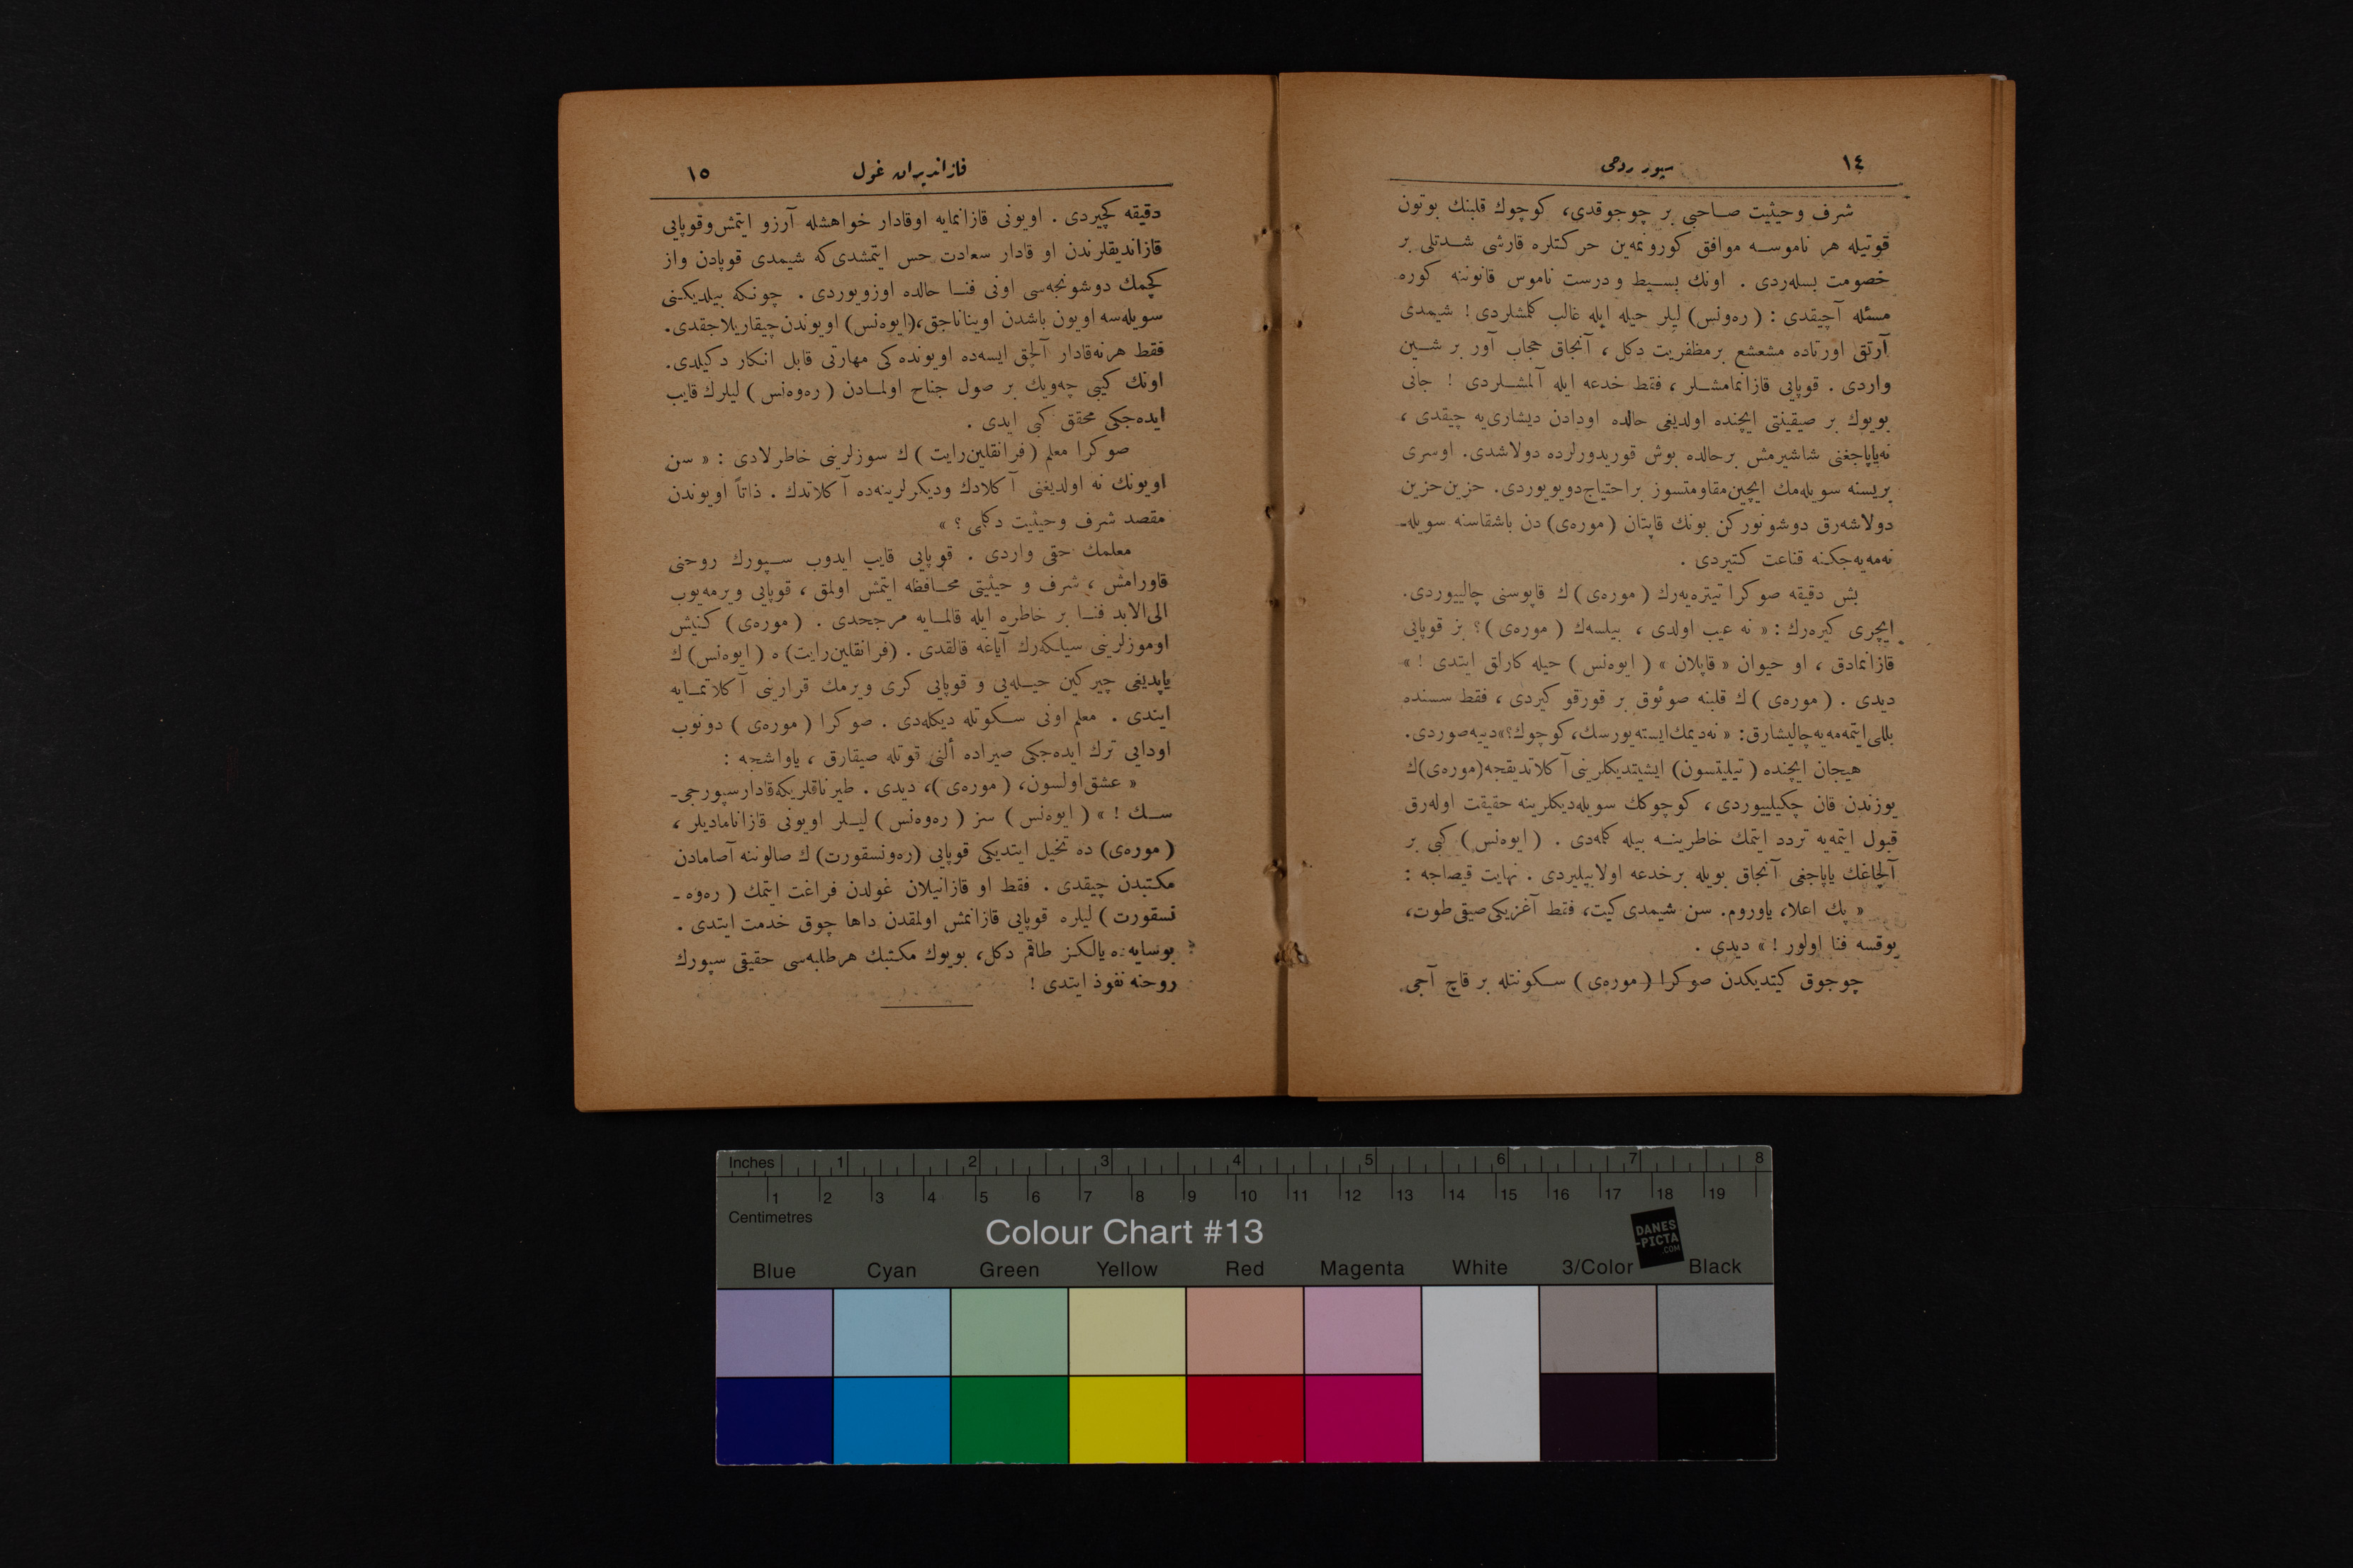 ١٤
سپور روحی
شرف وحیثیت صاحبی بر چوجوقدی، کوچوك قلبنك بوتون
قوتیله هر ناموسـه موافق کورونمه‌ین حرکتلره قارشی شـدتلی بر
خصومت بسله‌ردی . اونك بسـیط و درست ناموس قانوننه کوره
مسئله آچیقدی : (ره‌ونس) لیلر حیله ایله غالب کلمشلردی ! شیمدی
آرتق اورتاده مشعشع برمظفریت دکل ، آنجاق حجاب آور بر شـین
واردی . قوپایی قازانمامشـلر ، فقط خدعه ایله آلمشـلردی ! جانی
بویوك بر صیقینتی ایچنده اولدیغی حالده اودادن دیشاری‌یه چیقدی ،
نه‌یاپاجغنی شاشیرمش برحالده بوش قوریدورلرده دولاشدی. اوسری
بریسنه سویله‌مك ایچین مقاومتسوز براحتیاج دویویوردی. حزین حزین
دولاشه‌رق دوشونورکن بونك قاپتان (موره‌ی) دن باشقاسنه سویله‌ـ
نه‌مه‌یه‌جکنه قناعت کتیردی .
بش دقیقه صوکرا تیتره‌یه‌رك (موره‌ی) ك قاپوسنی چالییوردی.
ایچری کیره‌رك : « نه عیب اولدی ، بیلسه‌ك (موره‌ی) ؟ بز قوپایی
قازانمادق ، او حیوان « قاپلان » (ایوه‌نس) حیله کارلق ایتدی ! »
دیدی . (موره‌ی) ك قلبنه صوئوق بر قورقو کیردی ، فقط سسنده
بللی ایتمه‌مه‌یه چالیشارق: « نه‌دیمك ایسته‌یورسك، کوچوك؟» دییه صوردی.
هیجان ایچنده (تیلیتسون) ایشیتدیکلرینی آکلاتدیقجه (موره‌ی) ك
یوزندن قان چکیلییوردی ، کوچوکك سویله‌دیکلرینه حقیقت اوله‌رق
قبول ایتمه‌یه تردد ایتمك خاطرینـه بیله کلمه‌دی . (ایوه‌نس) کبی بر
آلچاغك یاپاجغی آنجاق بویله برخدعه اولابیلیردی . نهایت قیصاجه :
« پك اعلا، یاوروم. سن شیمدی کیت، فقط آغزیکی صیقی طوت،
یوقسه فنا اولور ! » دیدی .
چوجوق کیتدیکدن صوکرا (موره‌ی) سـکونتله بر قاچ آجی
قازاندیران غول
١٥
دقیقه کچیردی . اویونی قازانمایه اوقادار خواهشله آرزو ایتمش وقوپایی
قازاندیقلرندن او قادار سعادت حس ایتمشدی که شیمدی قوپادن واز
کچمك دوشونجه‌سی اونی فنـا حالده اوزویوردی . چونکه بیلدیکینی
سویله‌سه اویون باشدن اویناناجق، (ایوه‌نس) اویوندن چیقاریلاجقدی.
فقط هرنه‌قادار آلچق ایسه‌ده اوینده‌کی مهارتی قابل انکار دکیلدی.
اونك کیبی چه‌ویك بر صول جناح اولمـادن (ره‌وه‌نس) لیلرك قایب
ایده‌جکی محقق کبی ایدی .
صوکرا معلم (فرانقلین رایت) ك سوزلرینی خاطرلادی : « سن
اویونك نه اولدیغنی آکلادك ودیکرلرینه‌ده آکلاتدك . ذاتاً اویوندن
مقصد شرف وحیثیت دکلی ؟ »
معلمك حقی واردی . قوپایی قایب ایدوب سـپورك روحنی
قاورامش ، شرف و حیثیتی محـافظه ایتمش اولمق ، قوپایی ویرمه‌یوب
الی‌الابد فنـا بر خاطره ایله قالمـایه مرجحدی . (موره‌ی) کنیش
اوموزلرینی سیلکه‌رك آیاغه قالقدی . (فرانقلین رایت) ه (ایوه‌نس) ك
یاپدیغی چیرکین حیـله‌یی و قوپایی کری ویرمك قرارینی آکلاتمـایه
ایندی . معلم اونی سـکوتله دیکله‌دی . صوکرا (موره‌ی) دونوب
اودایی ترك ایده‌جکی صیراده ألنی قوتله صیقارق ، یاواشجه :
« عشق اولسون، (موره‌ی)، دیدی . طیرناقلریکه قادار سپورجی‌ـ
سـك ! » (ایوه‌نس) سز (ره‌وه‌نس) لیـلر اویونی قازانامادیلر ،
(موره‌ی) ده تخیل ایتدیکی قوپایی (ره‌ونسقورت) ك صالوننه آصامادن
مکتبدن چیقدی . فقط او قازانیلان غولدن فراغت ایتمك (ره‌وه ـ
نسقورت) لیلره قوپایی قازانمش اولمقدن داها چوق خدمت ایتدی .
بوسایه‌ده یالکز طاقم دکل، بویوك مکتبك هرطلبه‌سی حقیقی سپورك
روحنه نفوذ ایتدی !
Inches 1 2 3 4 5 6 7 8
1 2 3 4 5 6 7 8 9 10 11 12 13 14 15 16 17 18 19
Centimetres
Colour Chart #13
DANES
-PICTA
.COM
Blue Cyan Green Yellow Red Magenta White 3/Color Black